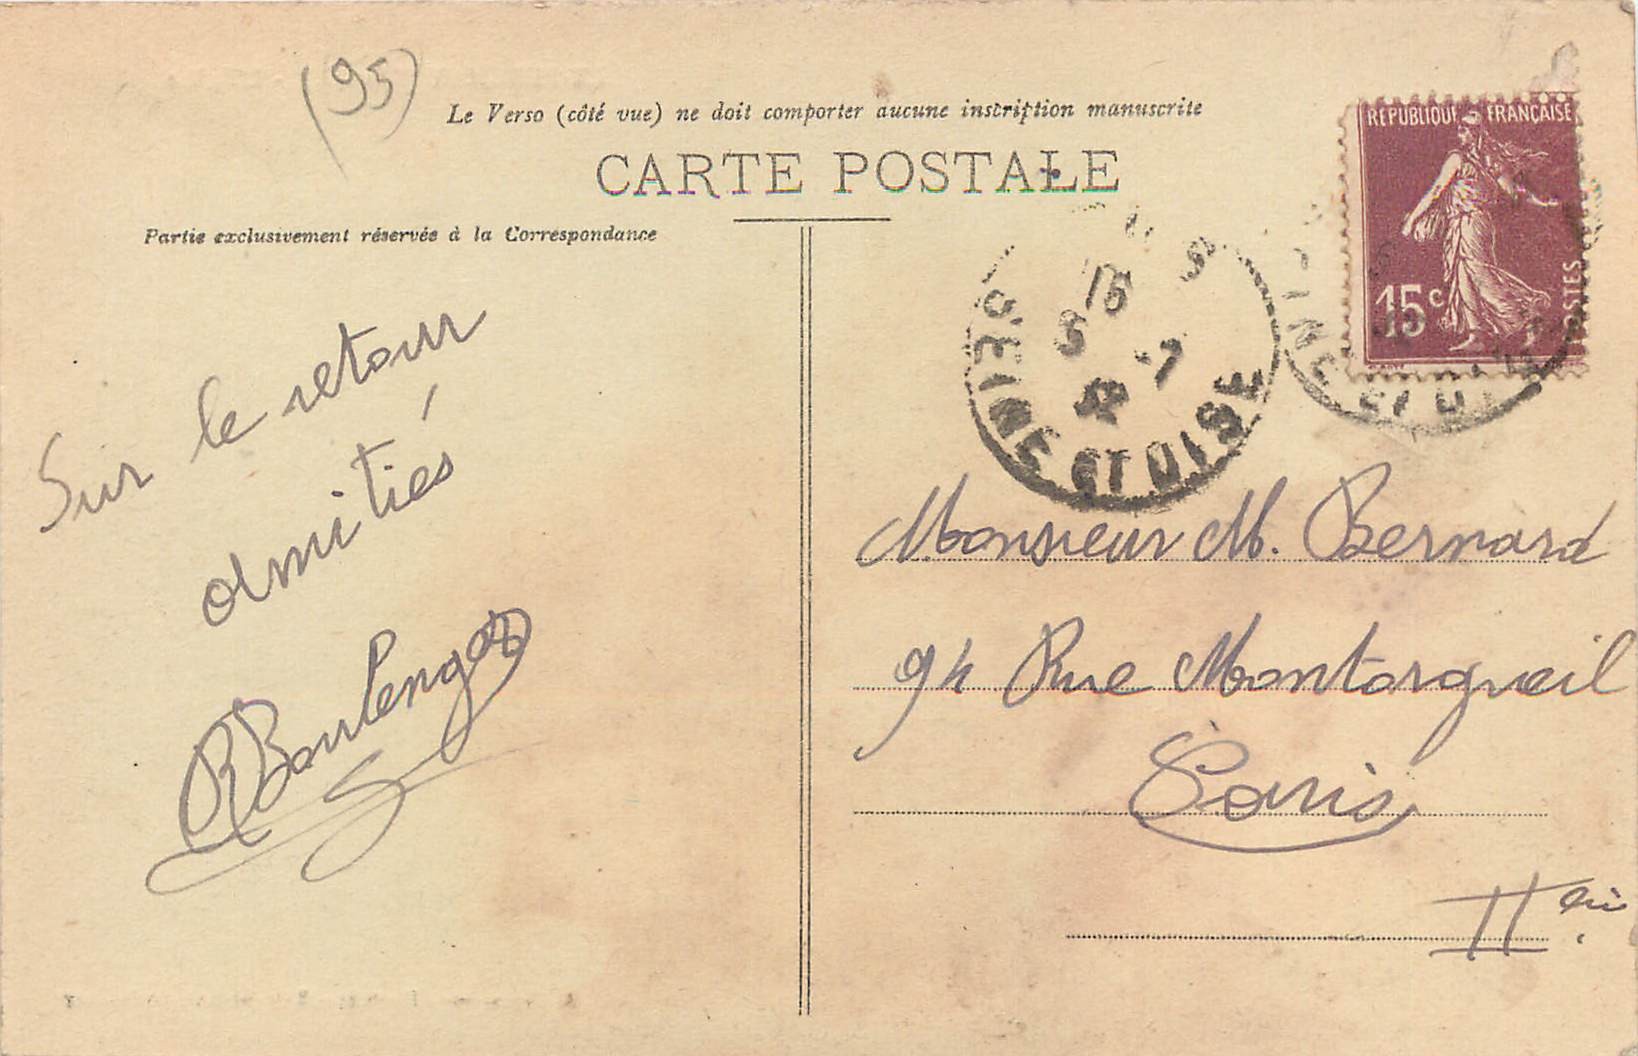 (95)
Le Verso (côté vue) ne doit comporter aucune inscription manuscrite
CARTE POSTALE
Partie exclusivement réservée à la Correspondance
Sur le retour
amitiés
RBoulenger
RÉPUBLIQUE FRANÇAISE
15c
POSTES
15
5 -7
32
SEINE ET OISE
Monsieur M. Bernard
94 Rue Montorgueil
Paris
IIè